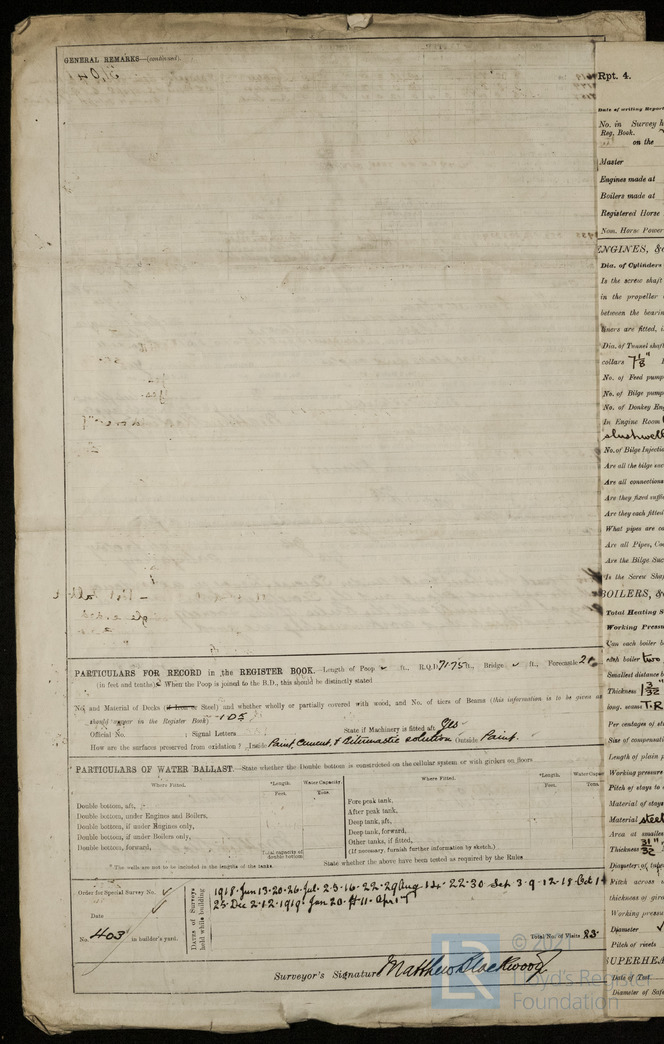 GENERAL REMARKS—(continued).
PARTICULARS FOR RECORD in the REGISTER BOOK. Length of Poop ft., R.Q.D. 71.75 ft., Bridge ft., Forecastle
(in feet and tenths). When the Poop is joined to the B.D., this should be distinctly stated
No. and Material of Decks (if Iron or Steel) and whether wholly or partially covered with wood, and No. of tiers of Beams (this information is to be given as
should appear in the Register Book)
Official No. ; Signal Letters State if Machinery is fitted aft Yes
How are the surfaces preserved from oxidation? Inside Paint, cement, & Bitumastic solution Outside Paint.
PARTICULARS OF WATER BALLAST.—State whether the Double bottom is constructed on the cellular system or with girders on floors
Where Fitted. *Length. Water Capacity. Where Fitted. *Length. Water Capac
Feet. Tons. Feet. Tons.
Double bottom, aft,
Double bottom, under Engines and Boilers,
Double bottom, if under Engines only,
Double bottom, if under Boilers only,
Double bottom, forward,
Total capacity of double bottom
Fore peak tank,
After peak tank,
Deep tank, aft,
Deep tank, forward,
Other tanks, if fitted,
(If necessary, furnish further information by sketch.)
* The wells are not to be included in the lengths of the tanks.
State whether the above have been tested as required by the Rules
Order for Special Survey No.
Date
No. 403 in builder's yard.
Dates of Surveys held while building
1918. Jun 13. 20. 26. Jul. 2. 5. 16. 22. 29 Aug 14. 22. 30 Sep. 3. 9. 12. 18. Oct 1
25. Dec 2. 12. 1919. Jan 20.
Total No. of Visits 23.
Surveyor's Signature Matthew Blackwood
Rpt. 4.
Date of writing Report
No. in Survey h
Reg. Book.
on the
Master
Engines made at
Boilers made at
Registered Horse
Nom. Horse Power
ENGINES, &c
Dia. of Cylinders
Is the screw shaft
in the propeller
between the bearin
liners are fitted, i
Dia. of Tunnel shaft
collars 7 1/8"
No. of Feed pump
No. of Bilge pump
No. of Donkey Eng
In Engine Room
No. of Bilge Injectio
Are all the bilge suc
Are all connections
Are they fixed suffic
Are they each fitted
What pipes are ca
Are all Pipes, Coc
Are the Bilge Suc
Is the Screw Sha
BOILERS, &c
Total Heating S
Working Pressu
Can each boiler
each boiler two
Smallest distance b
Thickness 1 3/32"
long. seams T.R
Per centages of st
Size of compensati
Length of plain p
Working pressure
Pitch of stays to
Material of stays
Material steel
Area at smalles
Thickness 31/32"
Diameter of tubes
Pitch across
thickness of gird
Working pressu
Diameter
Pitch of rivets
SUPERHEA
Date of Test
Diameter of Safe
© 2021
LR Lloyd's Register
Foundation